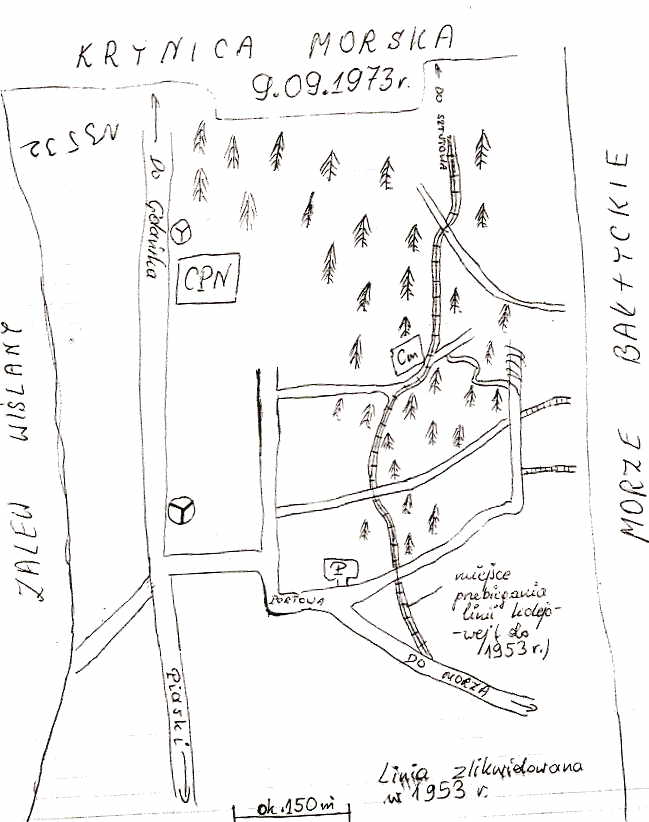 KRYNICA MORSKA
9.09.1973r.
DO SZTUTOWA
Do Gdańska
CPN
ZALEW WIŚLANY
MORZE BAŁTYCKIE
Cm
P
PORTOWA
DO MORZA
miejsce
przebiegania
linii kolejo-
-wej (do
1953 r.)
Piaski
Linia zlikwidowana
w 1953 r.
ok. 150 m